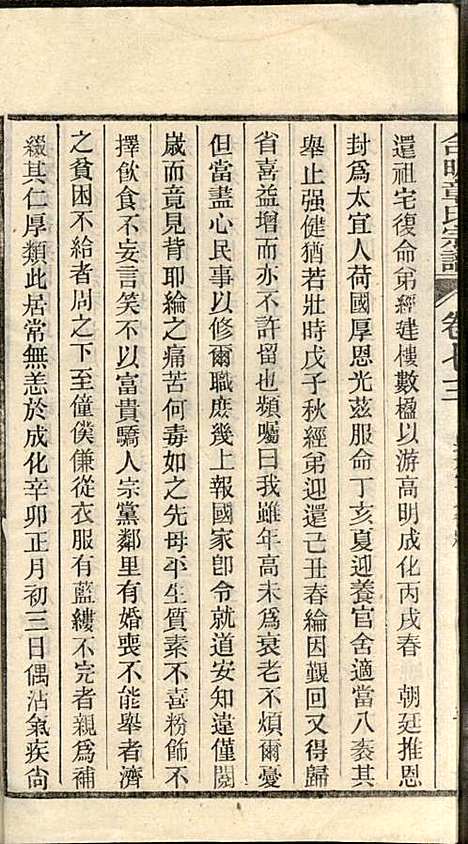 還祖宅復命弟經建樓數楹以游高明成化丙戌春　朝廷推恩
封爲太宜人荷國厚恩光茲服命丁亥夏迎養官舍適當八袠其
舉止强健猶若壯時戊子秋經弟迎還己丑春綸因覲回又得歸
省喜益增而亦不許留也頻囑曰我雖年高未爲衰老不煩爾憂
但當盡心民事以修爾職庶幾上報國家卽令就道安知違僅閱
歲而竟見背耶綸之痛苦何毒如之先母平生質素不喜粉飾不
擇飲食不妄言笑不以富貴驕人宗黨鄰里有婚喪不能舉者濟
之貧困不給者周之下至僮僕傔從衣服有藍縷不完者親爲補
綴其仁厚類此居常無恙於成化辛卯正月初三日偶沾氣疾尙